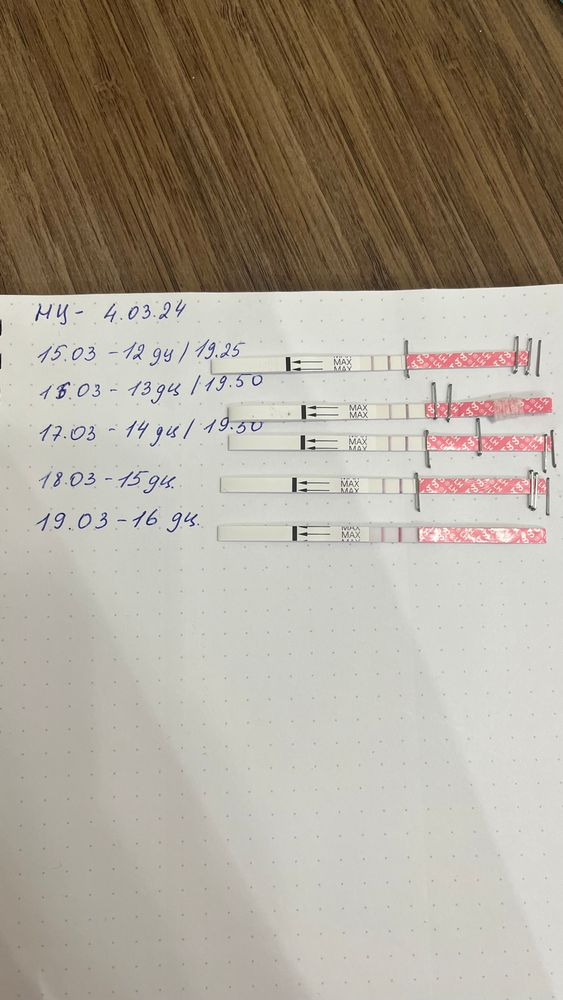 МЦ - 4.03.24
15.03 - 12 дц / 19.25
MAX
MAX
16.03 - 13 дц / 19.50
MAX
MAX
17.03 - 14 дц / 19.50
MAX
MAX
18.03 - 15 дц.
MAX
MAX
19.03 - 16 дц.
MAX
MAX